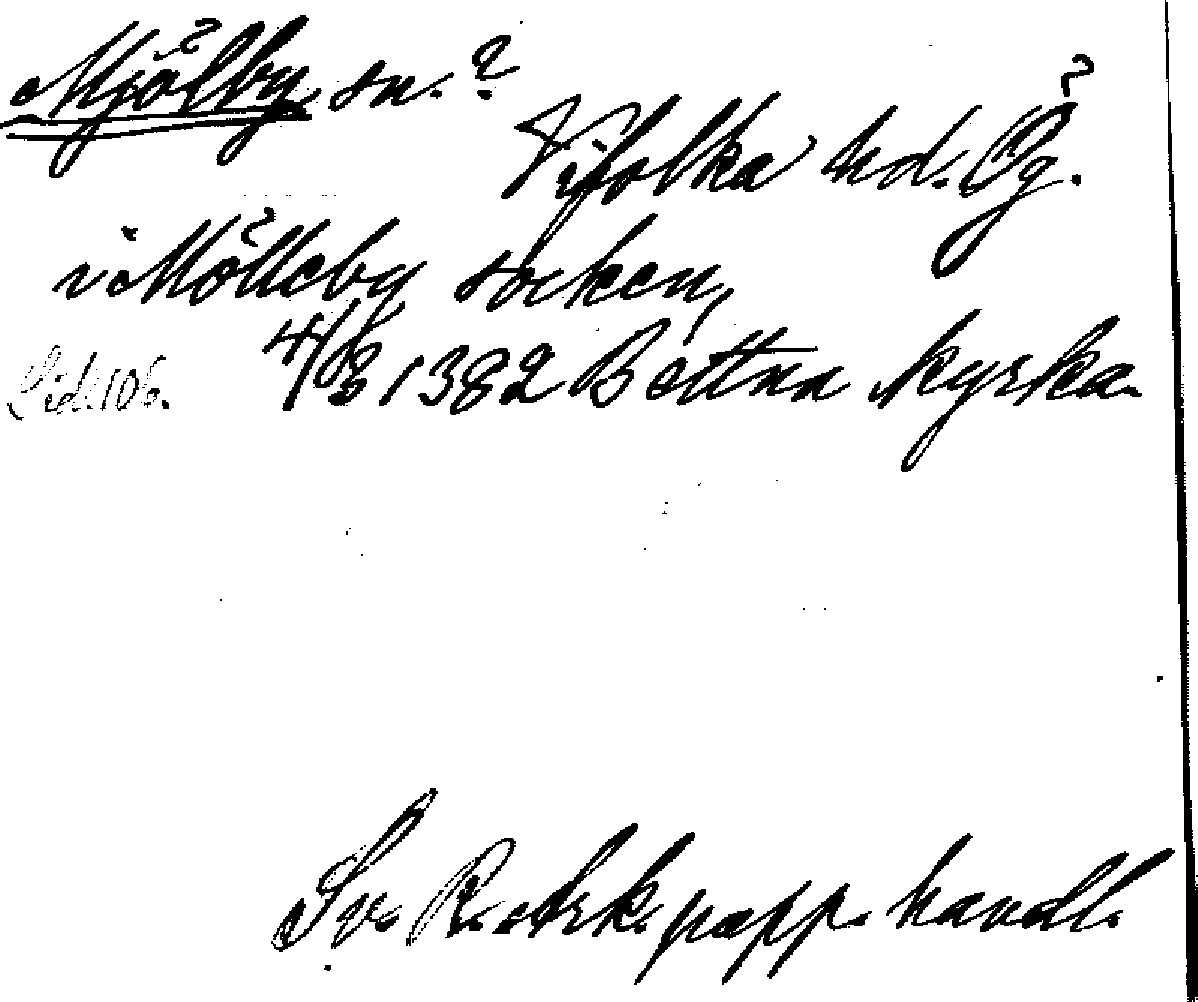 Mjölby sn.?
Vifolka hd. Ög.
i Mölleby socken,
Lid. 106. 4/8 1382 Bettna kyrka.
Sv. R. Ark. papp. handl.